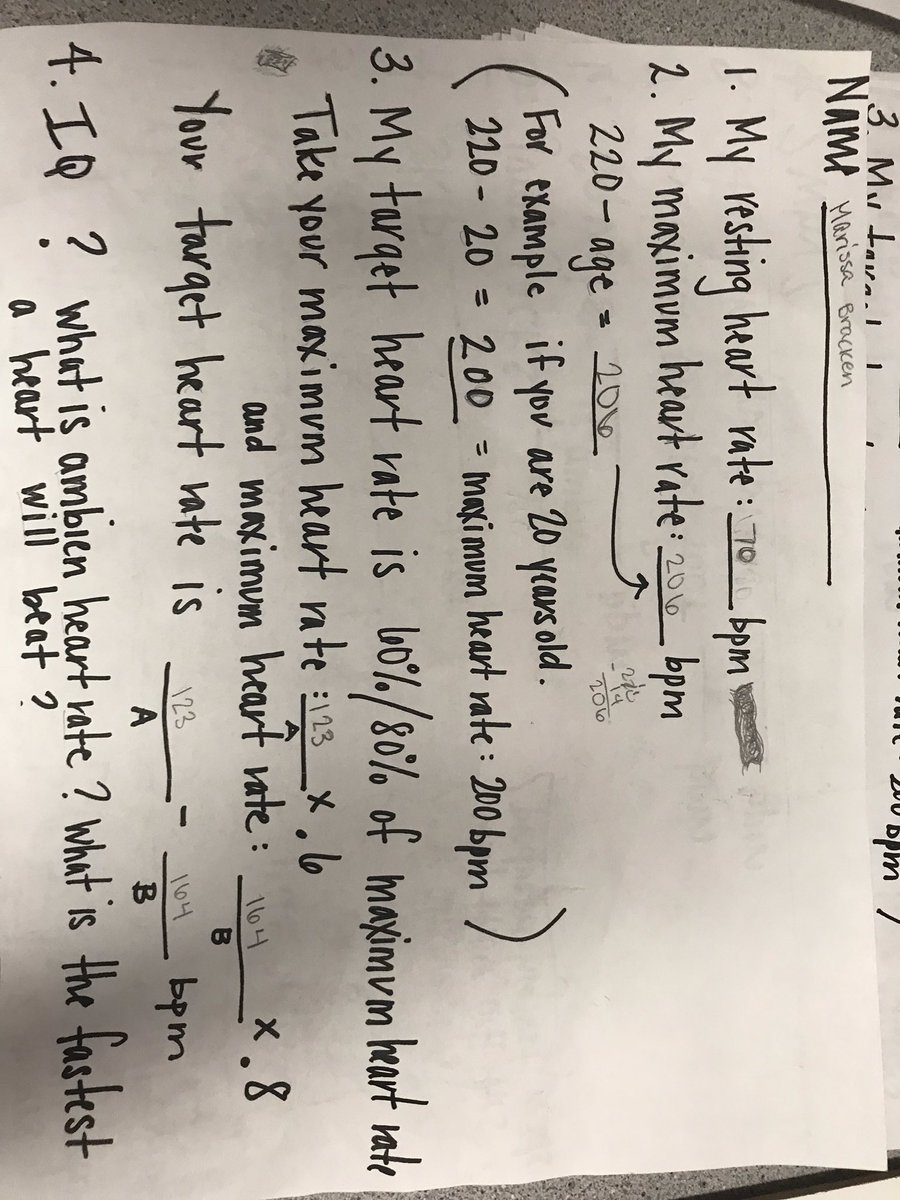 3. My
200 bpm )
Name Marissa Bracken
1. My resting heart rate: 70 bpm
2. My maximum heart rate: 206 bpm
220 - age = 206
220
- 14
206
(For example if you are 20 years old.
220 - 20 = 200 = maximum heart rate: 200 bpm )
3. My target heart rate is 60%/80% of maximum heart rate
Take your maximum heart rate: 123 x .6
A
and maximum heart rate: 164 x .8
B
Your target heart rate is 123 - 164 bpm
A B
4. IQ ? What is ambien heart rate? What is the fastest
a heart will beat?